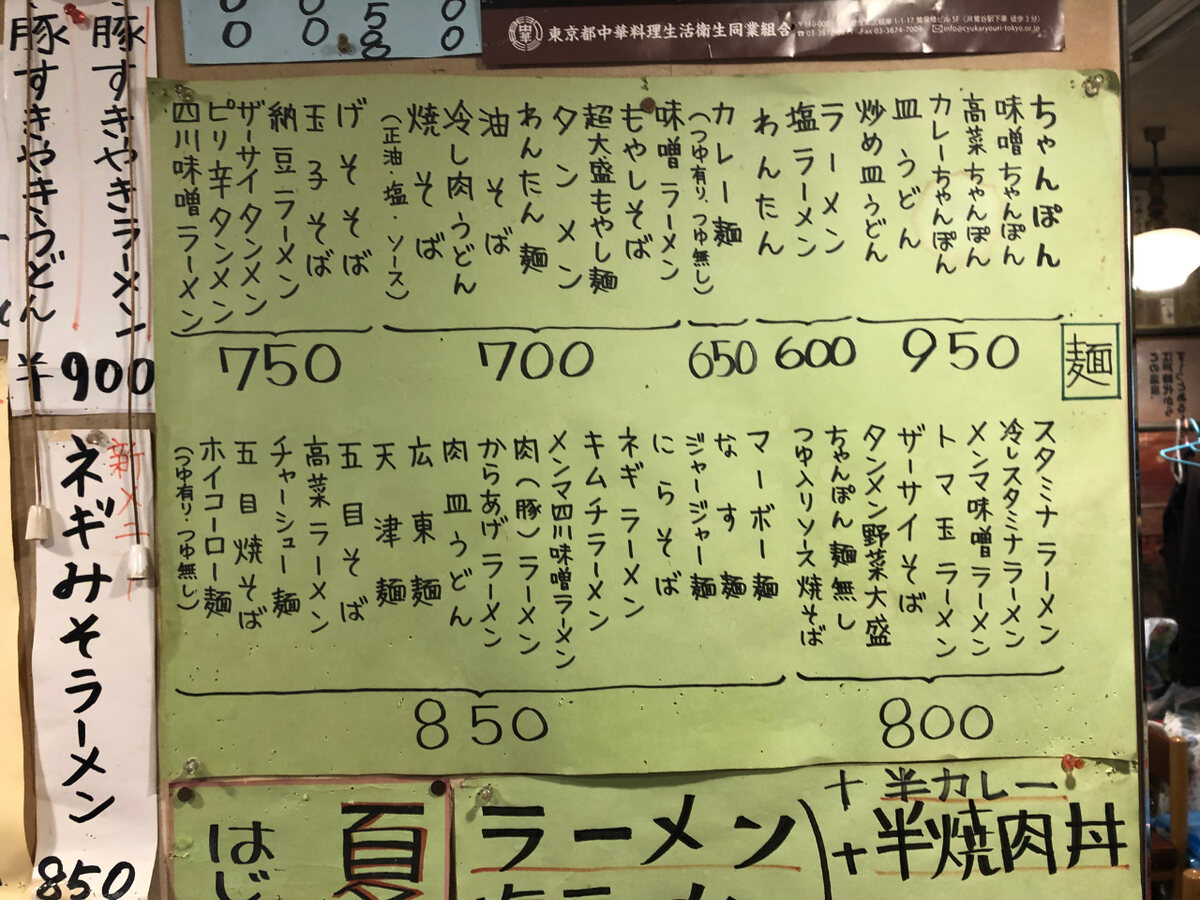 東京都中華料理生活衛生同業組合
麺
ちゃんぽん
味噌ちゃんぽん
高菜ちゃんぽん
カレーちゃんぽん
皿うどん
炒め皿うどん
950
ラーメン
塩ラーメン
わんたん
600
カレー麺
(つゆ有り、つゆ無し)
650
味噌ラーメン
もやしそば
超大盛もやし麺
タンメン
わんたん麺
油そば
冷し肉うどん
焼そば
(正油・塩・ソース)
700
げそそば
玉子そば
納豆ラーメン
ザーサイタンメン
ピリ辛タンメン
四川味噌ラーメン
750
スタミナラーメン
冷しスタミナラーメン
メンマ味噌ラーメン
トマ玉ラーメン
ザーサイそば
タンメン野菜大盛
ちゃんぽん麺無し
つゆ入りソース焼そば
800
マーボー麺
なす麺
ジャージャー麺
にらそば
ネギラーメン
キムチラーメン
メンマ四川味噌ラーメン
肉(豚)ラーメン
からあげラーメン
肉皿うどん
広東麺
天津麺
五目そば
高菜ラーメン
チャーシュー麺
五目焼そば
ホイコーロー麺
(つゆ有り・つゆ無し)
850
豚すきやきラーメン
豚すきやきうどん
¥900
新メニュー
ネギみそラーメン
850
+半カレー
+半焼肉丼
ラーメン
塩ラーメン
夏
はじ